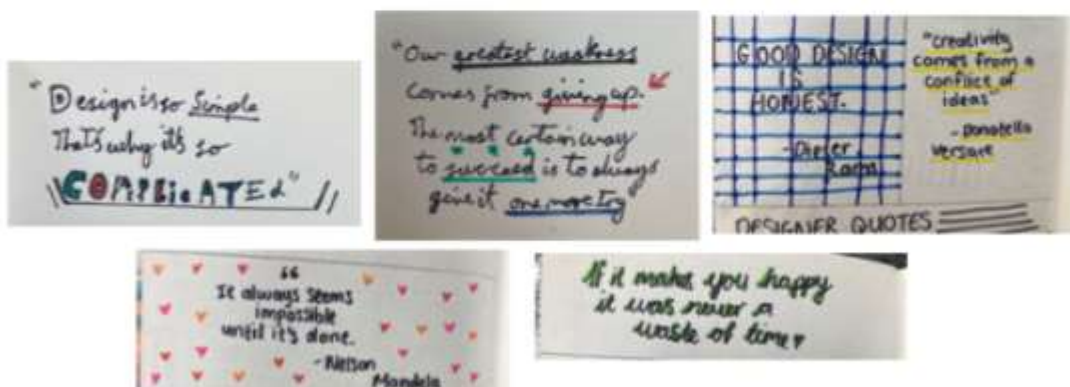 "Design is so Simple
That's why it's so
COMPLiCATEd"
"Our greatest weakness
comes from giving up.
The most certain way
to succeed is to always
give it one more try
GOOD DESIGN
IS
HONEST.
-Dieter
Rams
"creativity
comes from a
conflict of
ideas"
- Donatella
Versace
DESIGNER QUOTES
"
It always seems
impossible
until it's done.
- Nelson
Mandela
If it makes you happy
it was never a
waste of time